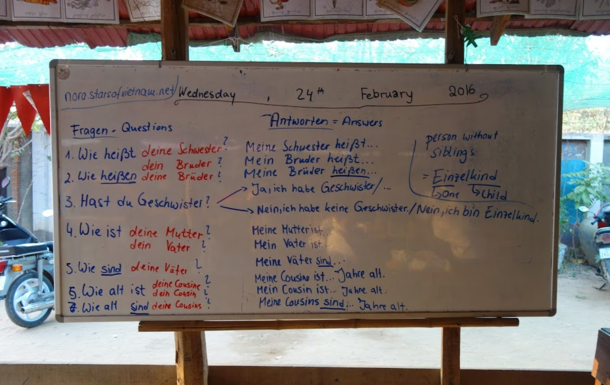 nora.starsofvietnam.net/ Wednesday, 24th February 2016
Fragen = Questions
Antworten = Answers
1. Wie heißt deine Schwester? Meine Schwester heißt...
dein Bruder? Mein Bruder heißt...
2. Wie heißen deine Brüder? Meine Brüder heißen...
3. Hast du Geschwister?
Ja, ich habe Geschwister/...
Nein, ich habe keine Geschwister/Nein, ich bin Einzelkind.
4. Wie ist deine Mutter? Meine Mutter ist
dein Vater? Mein Vater ist
5. Wie sind deine Väter? Meine Väter sind...
deine Cousine? Meine Cousine ist... Jahre alt.
6. Wie alt ist dein Cousin? Mein Cousin ist... Jahre alt.
7. Wie alt sind deine Cousins? Meine Cousins sind... Jahre alt.
person without
siblings
= Einzelkind
one child